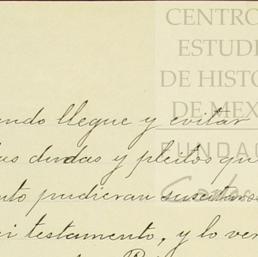 CENTRO
ESTUDI
DE HISTO
DE MEX
FUNDAC
Carlos
ando llegue y evitar
las dudas y pleitos que
nto pudieran suscitarse
mi testamento, y lo ver